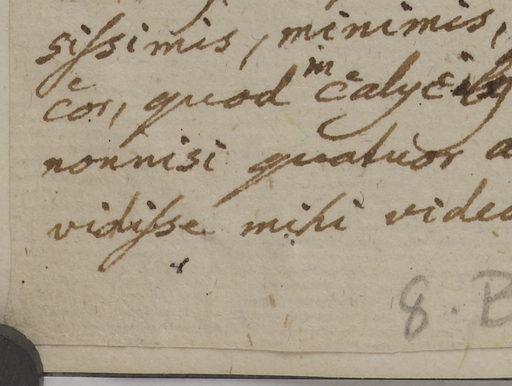 sissimis, minimis,
cor, quod in calyci
nonnisi quatuor a
vidisse mihi video
8. B